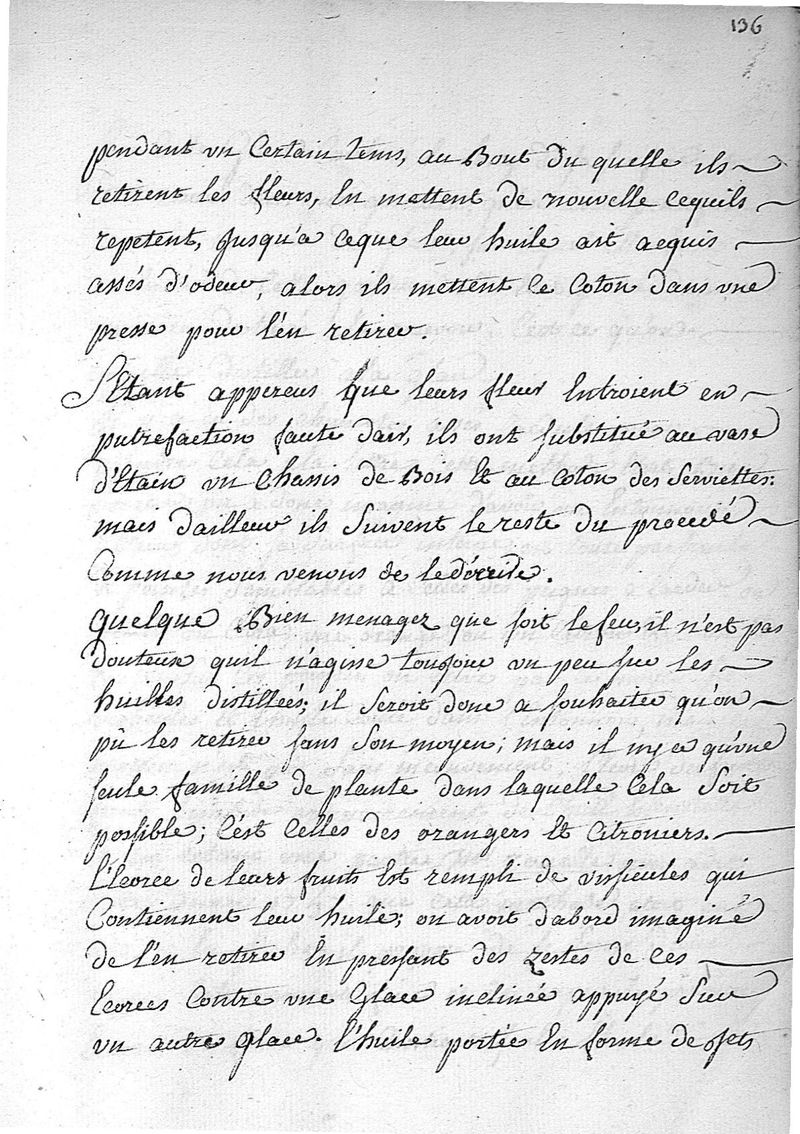 136
pendant un Certain tems, au Bout du quelle ils
retirent les fleurs, En mettent de nouvelle cequils
repetent, jusqu'a ceque leur huile ait acquis
assés d'odeur, alors ils mettent le Coton dans une
presse pour l'en retirer.
S'Etant appercus que leurs fleur Entroient en
putrefaction faute dair, ils ont substitué au vase
d'Etain un Chassis de Bois Et au Coton des Serviettes:
mais dailleur ils Suivent le reste du procedé
Comme nous venons de le décrire.
quelque Bien menagez que soit le feu, il n'est pas
douteux quil n'agisse toujour un peu sur les
huilles distillées; il Seroit donc a souhaiter qu'on
pû les retirer sans Son moyen; mais il ny a qu'une
seule famille de plante dans laquelle Cela Soit
possible; C'est Celles des orangers Et Citroniers.
l'Ecorce de leurs fruits Est rempli de vissicules qui
Contiennent leur huile; on avoit d'abord imaginé
de l'en retirer En pressant des zestes de Ces
Ecorces Contre une Glace inclinée appuyé Sur
un autre Glace. l'huile portée En forme de Jets